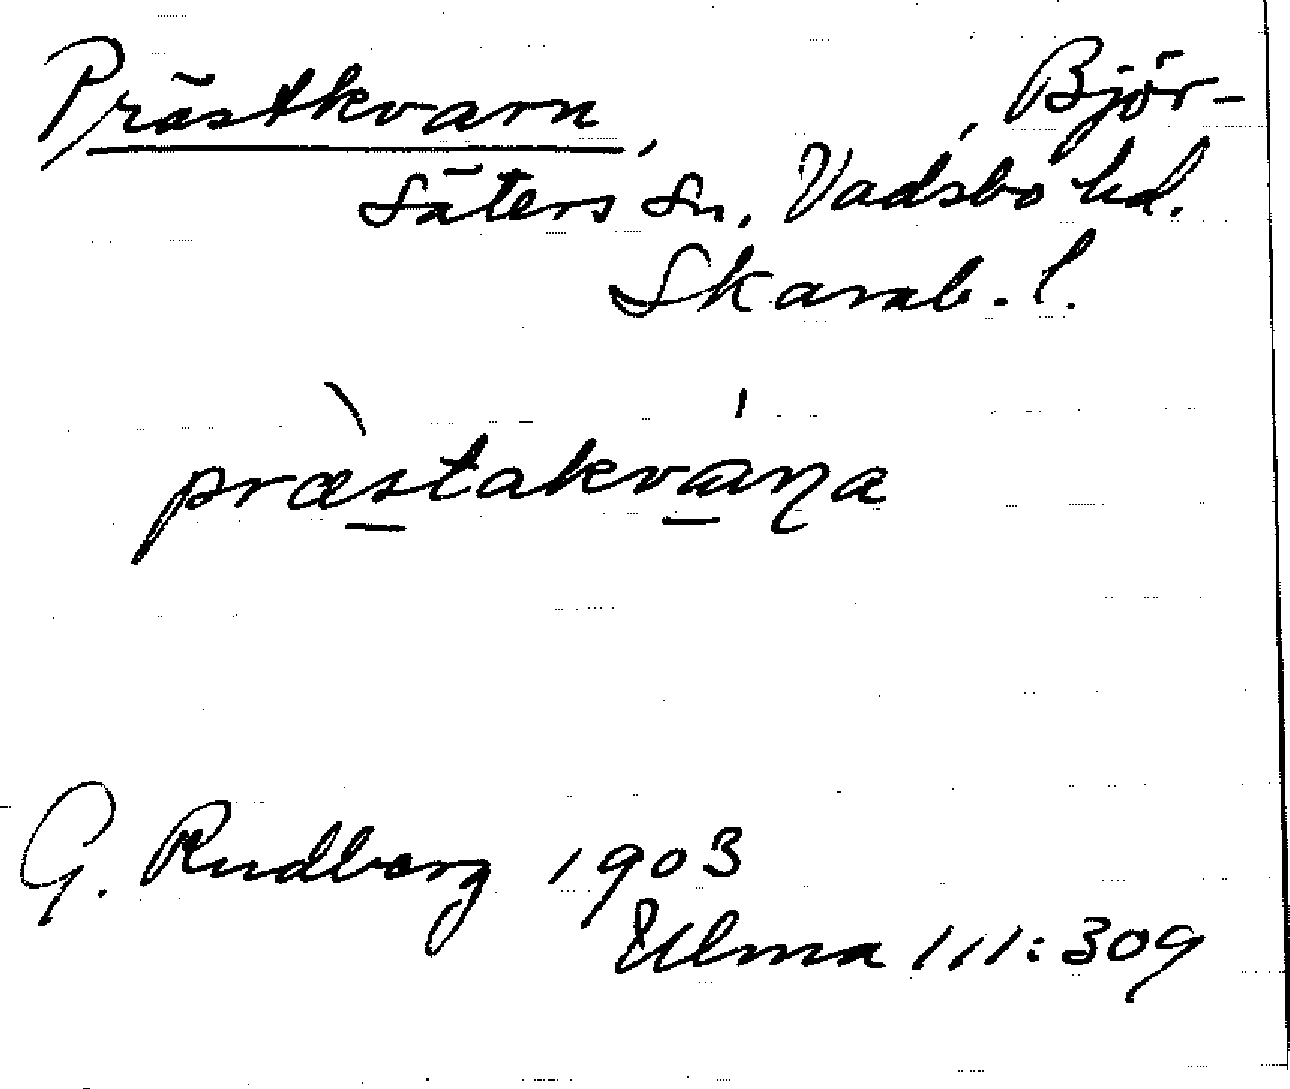 Prästkvarn, , Björ-
säters sn, Vadsbo hd.
Skarab. l.
præstakvaɳa
G. Rudberg 1903
Ulma 111:309